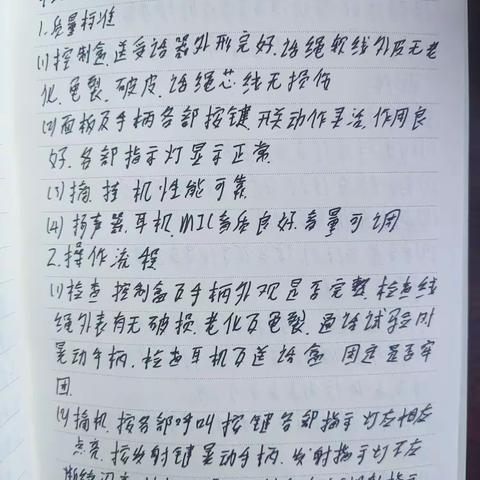 1.质量标准
(1)控制盒.送受话器外形完好.话绳软线外皮无老
化.龟裂.破皮.话绳芯线无损伤
(2)面板及手柄各部按键.开关动作灵活.作用良
好.各部指示灯显示正常.
(3)摘.挂机性能可靠.
(4)扬声器.耳机.MIC音质良好.音量可调
2.操作流程
(1)检查控制盒及手柄外观是否完整.检查线
绳外表有无破损.老化及龟裂.通话试验时
晃动手柄.检查耳机及送话盒固定是否牢
固.
(2)摘机.按各部
点亮.按各按键晃动手柄.